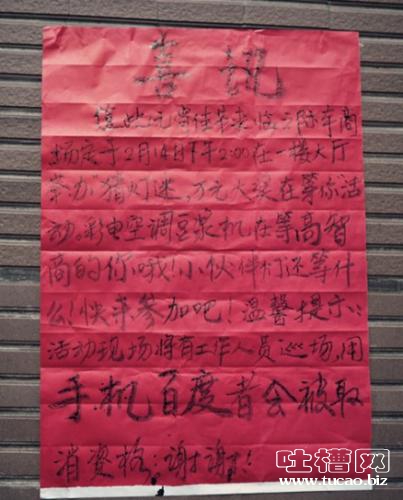 喜讯
值此元宵佳节来临之际本商
场定于2月14日下午2:00在一楼大厅
举办“猜灯迷,万元大奖在等你活
动。彩电空调豆浆机在等高智
商的你哦!小伙伴们还等什
么!快来参加吧!温馨提示:
活动现场将有工作人员巡场,用
手机百度者会被取
消资格:谢谢!
吐槽网
www.tucao.biz